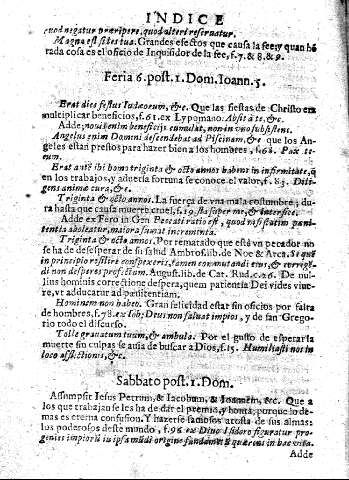 INDICE
quod negatur præripere, quod alteri reservatur.
Magna est fides tua. Grandes efectos que causa la fee, y quan hõ
rada cosa es el oficio de Inquisidor de la fee, f.7. & 8. & 9.
Feria 6. post. 1. Dom. Ioann. 5.
Erat dies festus Iudæorum, &c. Que las fiestas de Christo era
multiplicar beneficios, f. 61. ex Lypomano. Absit à te, &c.
Adde, novi enim beneficijs cumulat, non in uno subsistens.
Angelus enim Domini descendebat ad Piscinam, &c que los An-
geles estan prestos para hazer bien a los hombres, f. 68. Pax te-
cum.
Erat autē ibi homo triginta & octo annos habens in infirmitate, q
en los trabajos, y adversa fortuna se conoce el valor, f. 83. Dili-
gens anima cura, &c.
Triginta & octo annos. La fuerça de vna mala costumbre; du-
ra hasta que causa muerte cruel, f. 19. sta super me, & interfice.
Adde ex Fero in Gen Peccati ratio est, quod nisi statim pœni-
tentia aboleatur, maiora faciat incrementa.
Triginta & octo annos. Por rematado que està vn pecador no
se ha de desesperar de su salud Ambros. lib. de Noe & Arca. Si quos
in principio resistere conspexeris, tamen commutandi eius, & corrigē-
di non desperes profectum. August. lib. de Cat. Rud. c. 26. De nul-
lius hominis correctione despera, quem patientia Dei vides vivere,
vt adducatur ad pœnitentiam.
Hominem non habeo. Gran felicidad estar sin oficios por falta
de hombres, f. 78. ex Iob; Deus non salvat impios, y de san Grego-
rio todo el discurso.
Tolle grabatum tuum, & ambula. Por el gusto de esperar la
muerte sin culpas se avia de buscar a Dios, f. 15. Humiliasti nos in
loco afflictionis, &c.
Sabbato post. 1. Dom.
Assumpsit Iesus Petrum, & Iacobum, & Ioannem, &c. Que a
los que trabajan se les ha de dar el premio, y honra; porque lo de-
mas es eterna confusion. Y hazerse famosos de sus almas:
los poderosos deste mundo, f. 96 ex Divo Isidoro figuratur pro-
genies impiorū in ipsa mūdi origine fundamētū quærens in hac vita.
Adde